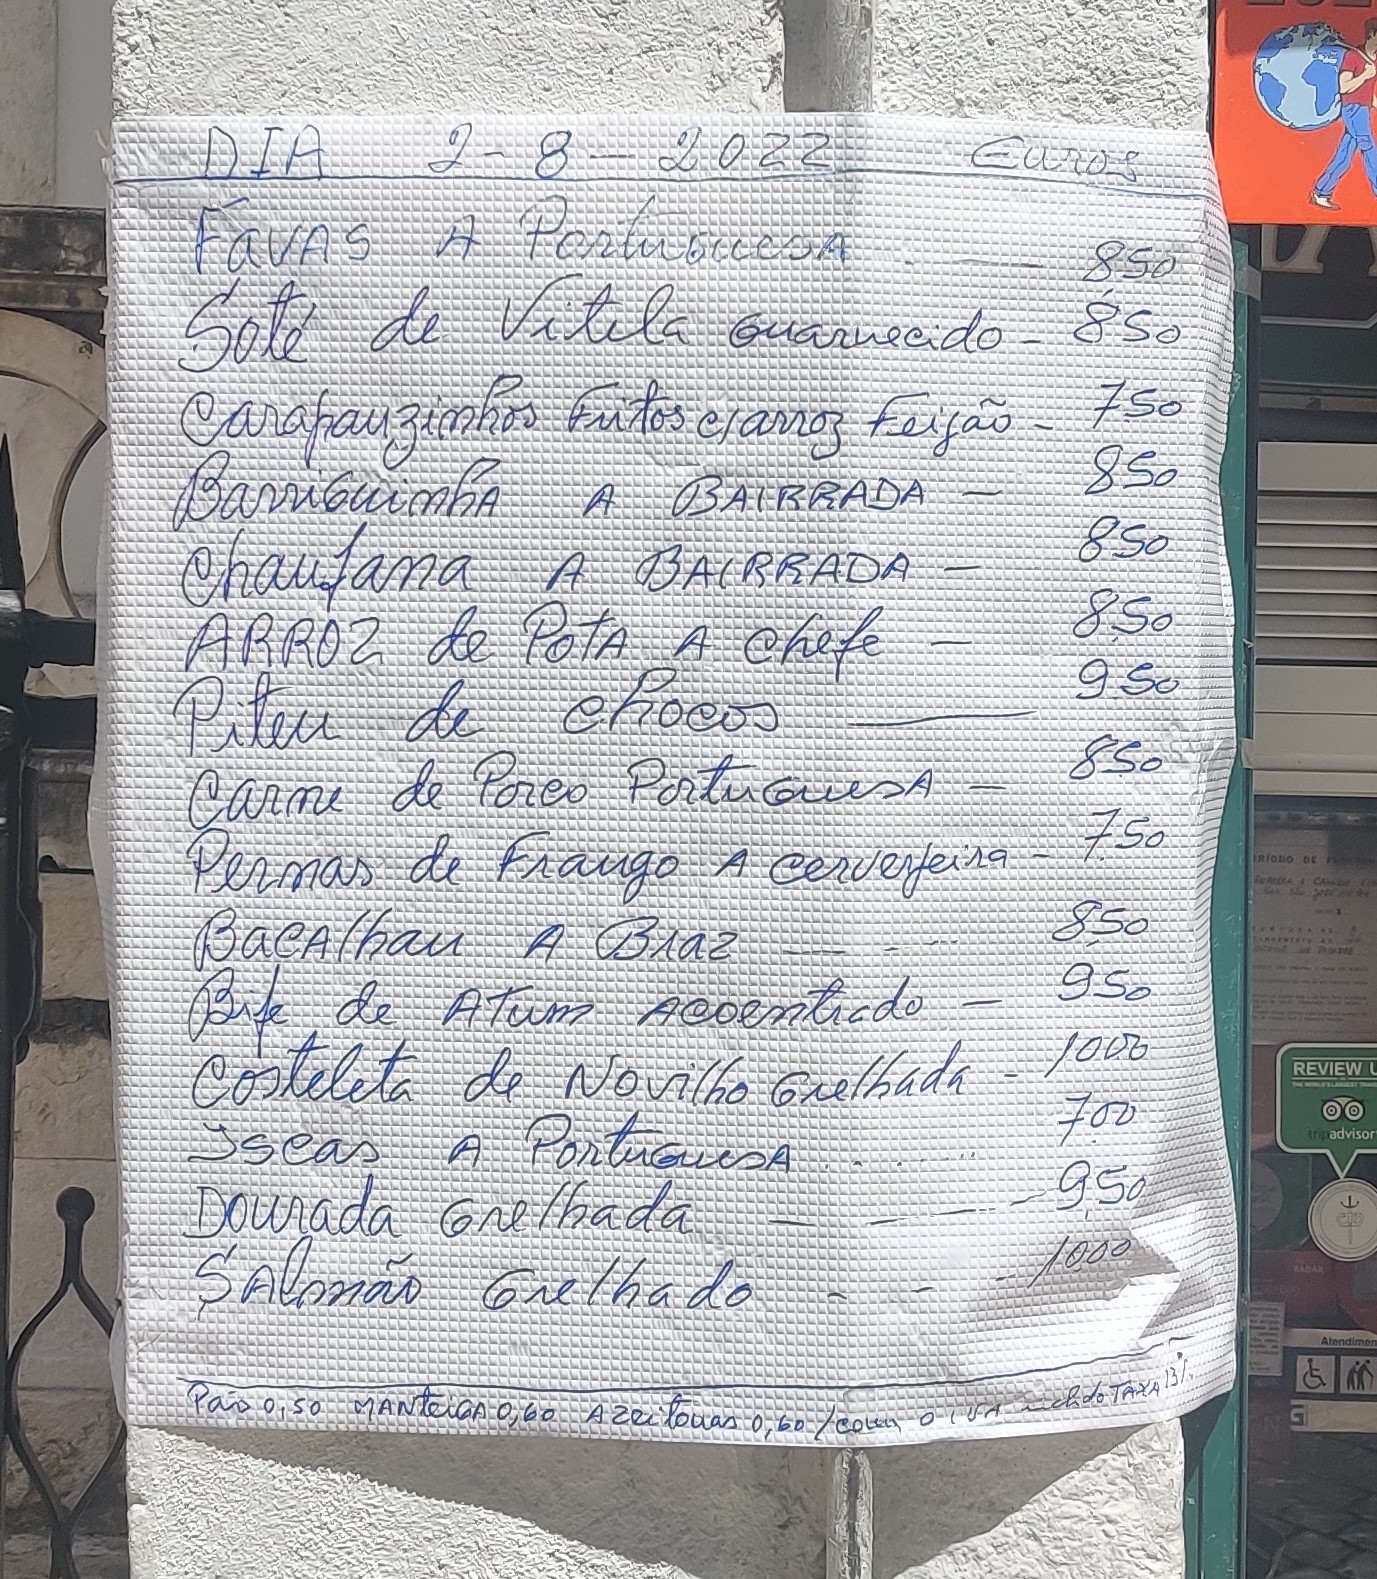 DIA 2-8-2022 Euros
FavAS A PortuguesA - 850
Soté de Vitela Guarnecido - 850
Carapauzinhos Fritos c/arroz Feijão - 750
BarriguinhA A BAIRRADA - 850
Chanfana A BAIRRADA - 850
ARROZ de PotA A chefe - 8,50
Piteu de chocos - 950
Carne de Porco PortuguesA - 850
Pernas de Frango A cervejeira - 7.50
BacAlhau A Braz - 8,50
Bife de Atum Acoentrado - 950
Costeleta de Novilho Grelhada - 1000
Iscas A PortuguesA - 7.00
Dourada Grelhada - 9,50
SAlmão Grelhado - 1000
Pão 0,50 MANteigA 0,60 Azeitonas 0,60 / com o IVA TAXA 13%
REVIEW U
tripadvisor
RADAR
Atendimen